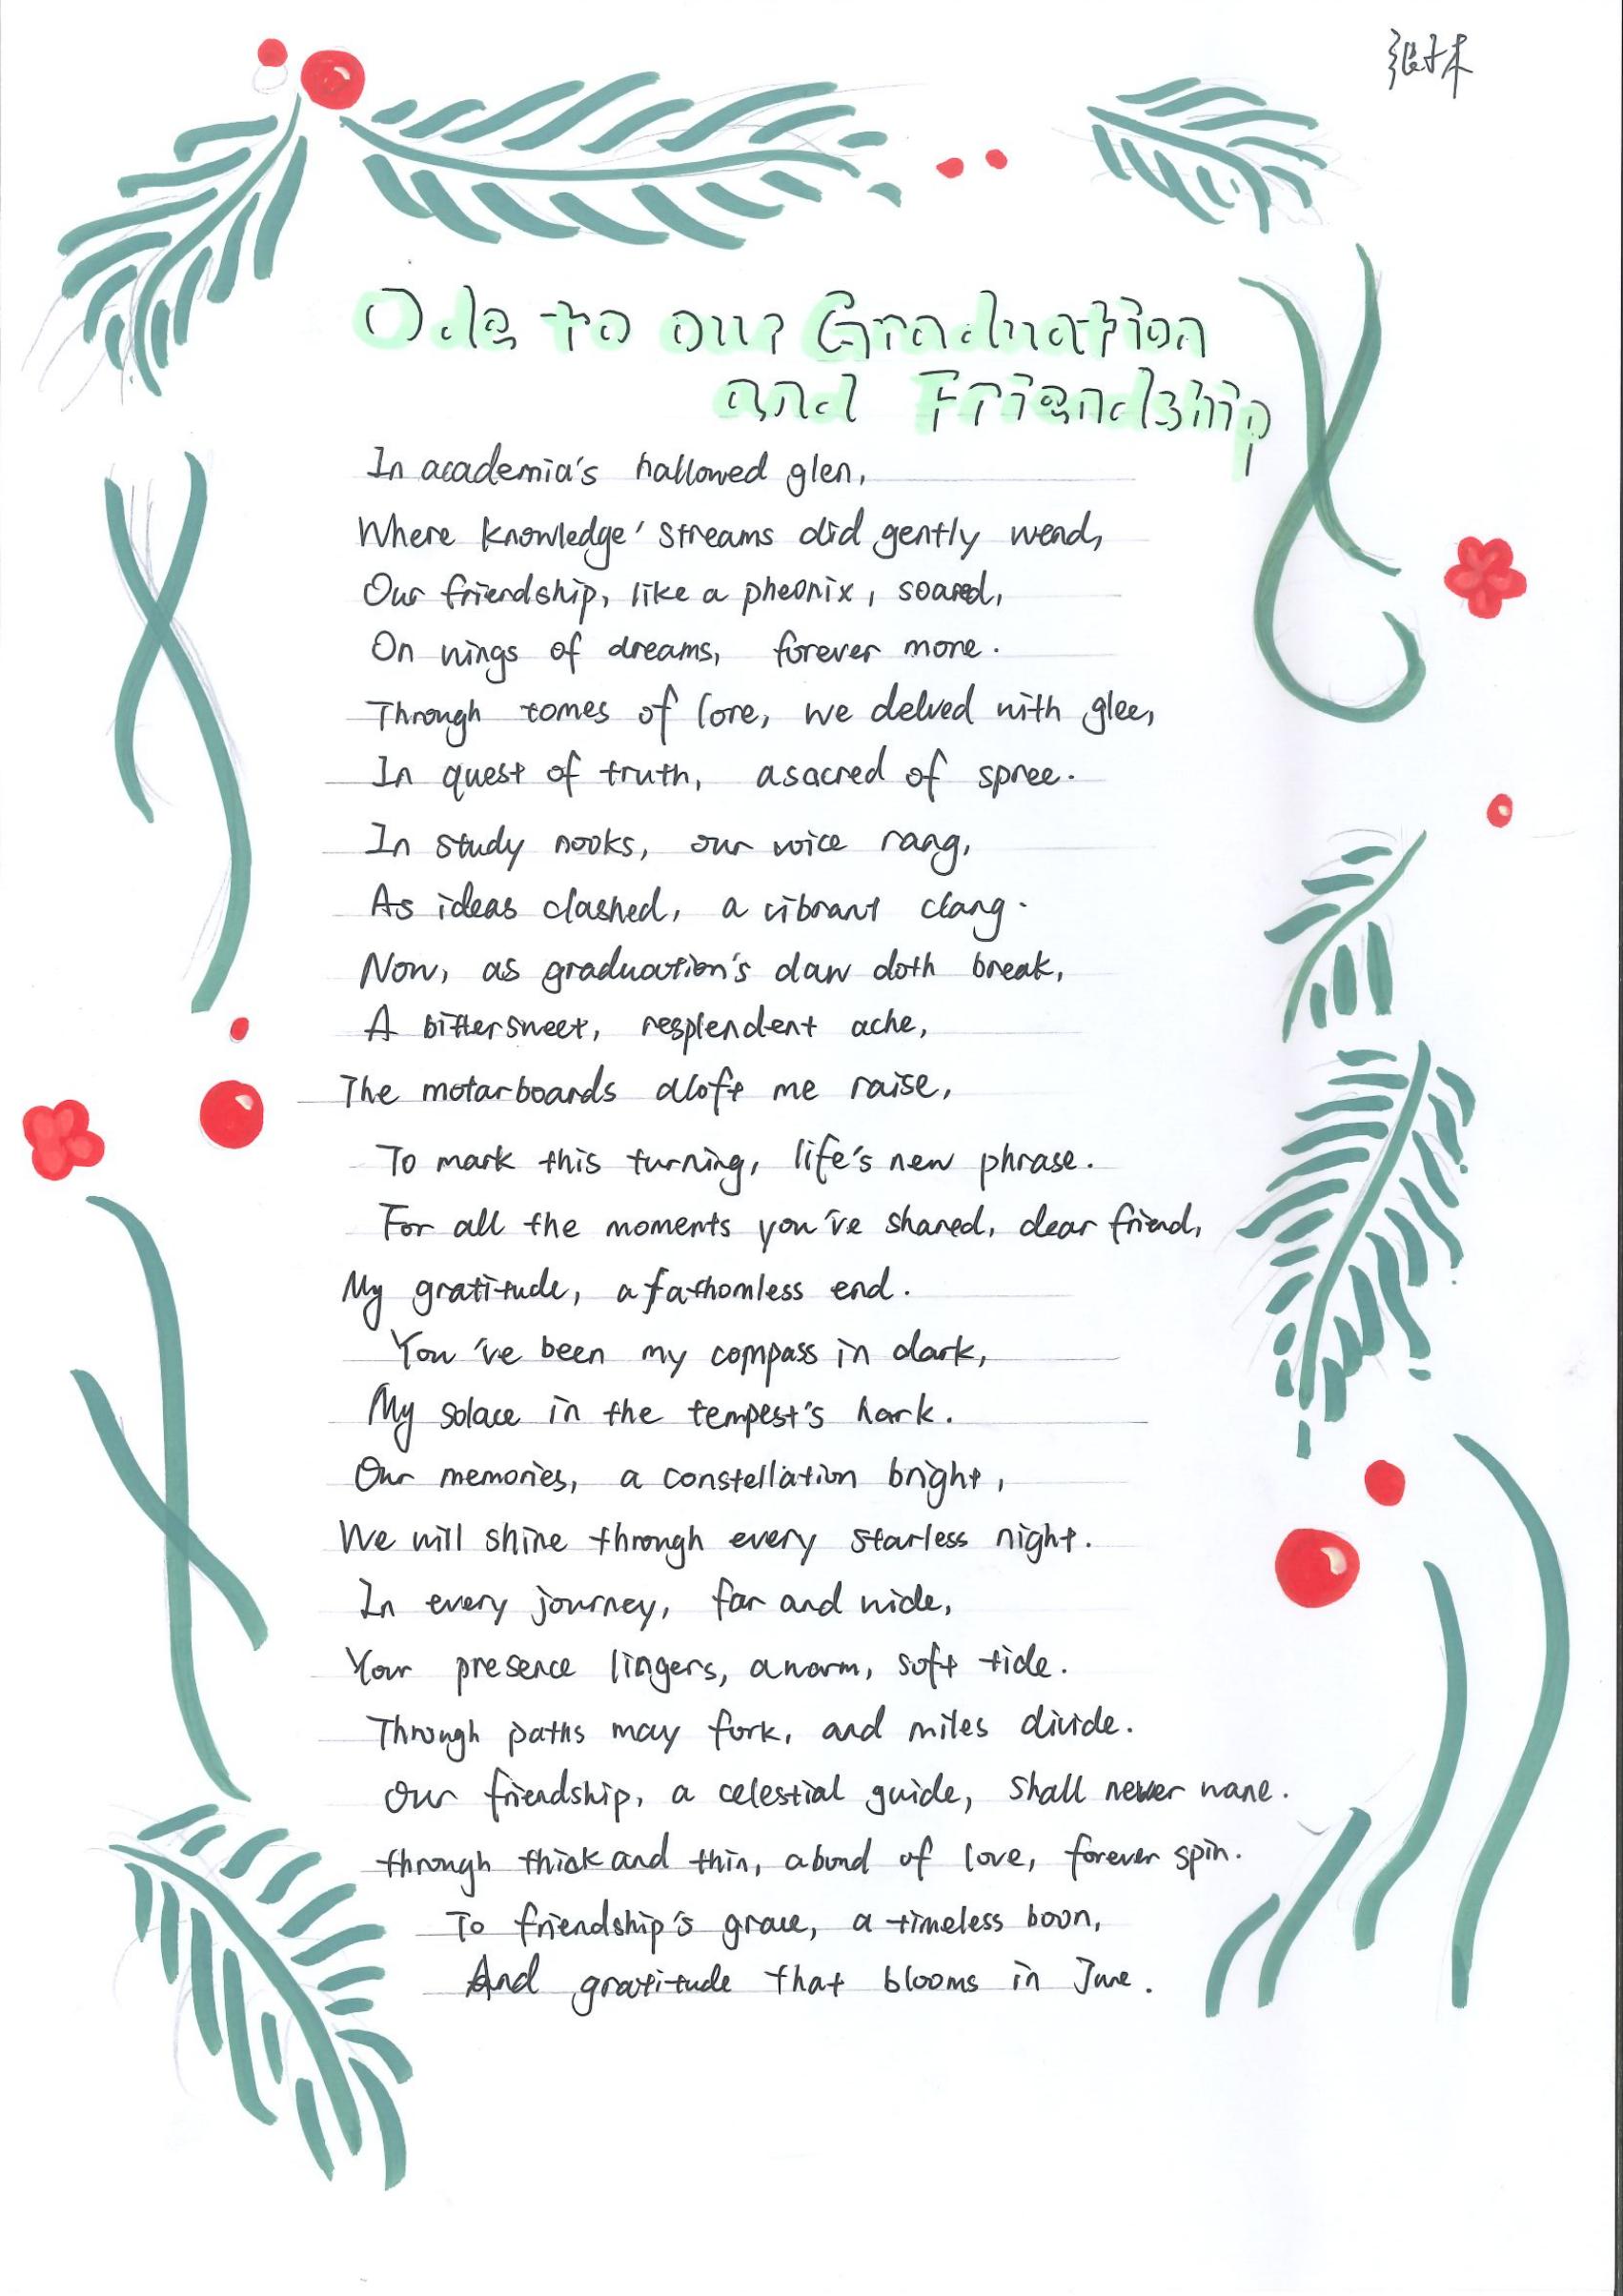 张木
Ode to our Graduation
and Friendship
In academia's hallowed glen,
Where knowledge' streams did gently wend,
Our friendship, like a pheonix, soared,
On wings of dreams, forever more.
Through tomes of lore, we delved with glee,
In quest of truth, a sacred of spree.
In study nooks, our voice rang,
As ideas clashed, a vibrant clang.
Now, as graduation's daw doth break,
A bittersweet, resplendent ache,
The motarboards aloft we raise,
To mark this turning, life's new phrase.
For all the moments you've shared, dear friend,
My gratitude, a fathomless end.
You've been my compass in dark,
My solace in the tempest's hark.
Our memories, a constellation bright,
We will shine through every starless night.
In every journey, far and wide,
Your presence lingers, a warm, soft tide.
Through paths may fork, and miles divide.
Our friendship, a celestial guide, shall never wane.
through thick and thin, a bond of love, forever spin.
To friendship's grace, a timeless boon,
And gratitude that blooms in June.